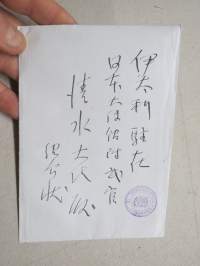 伊太利駐在
日本大使館附武官
清水大佐殿
紹介状